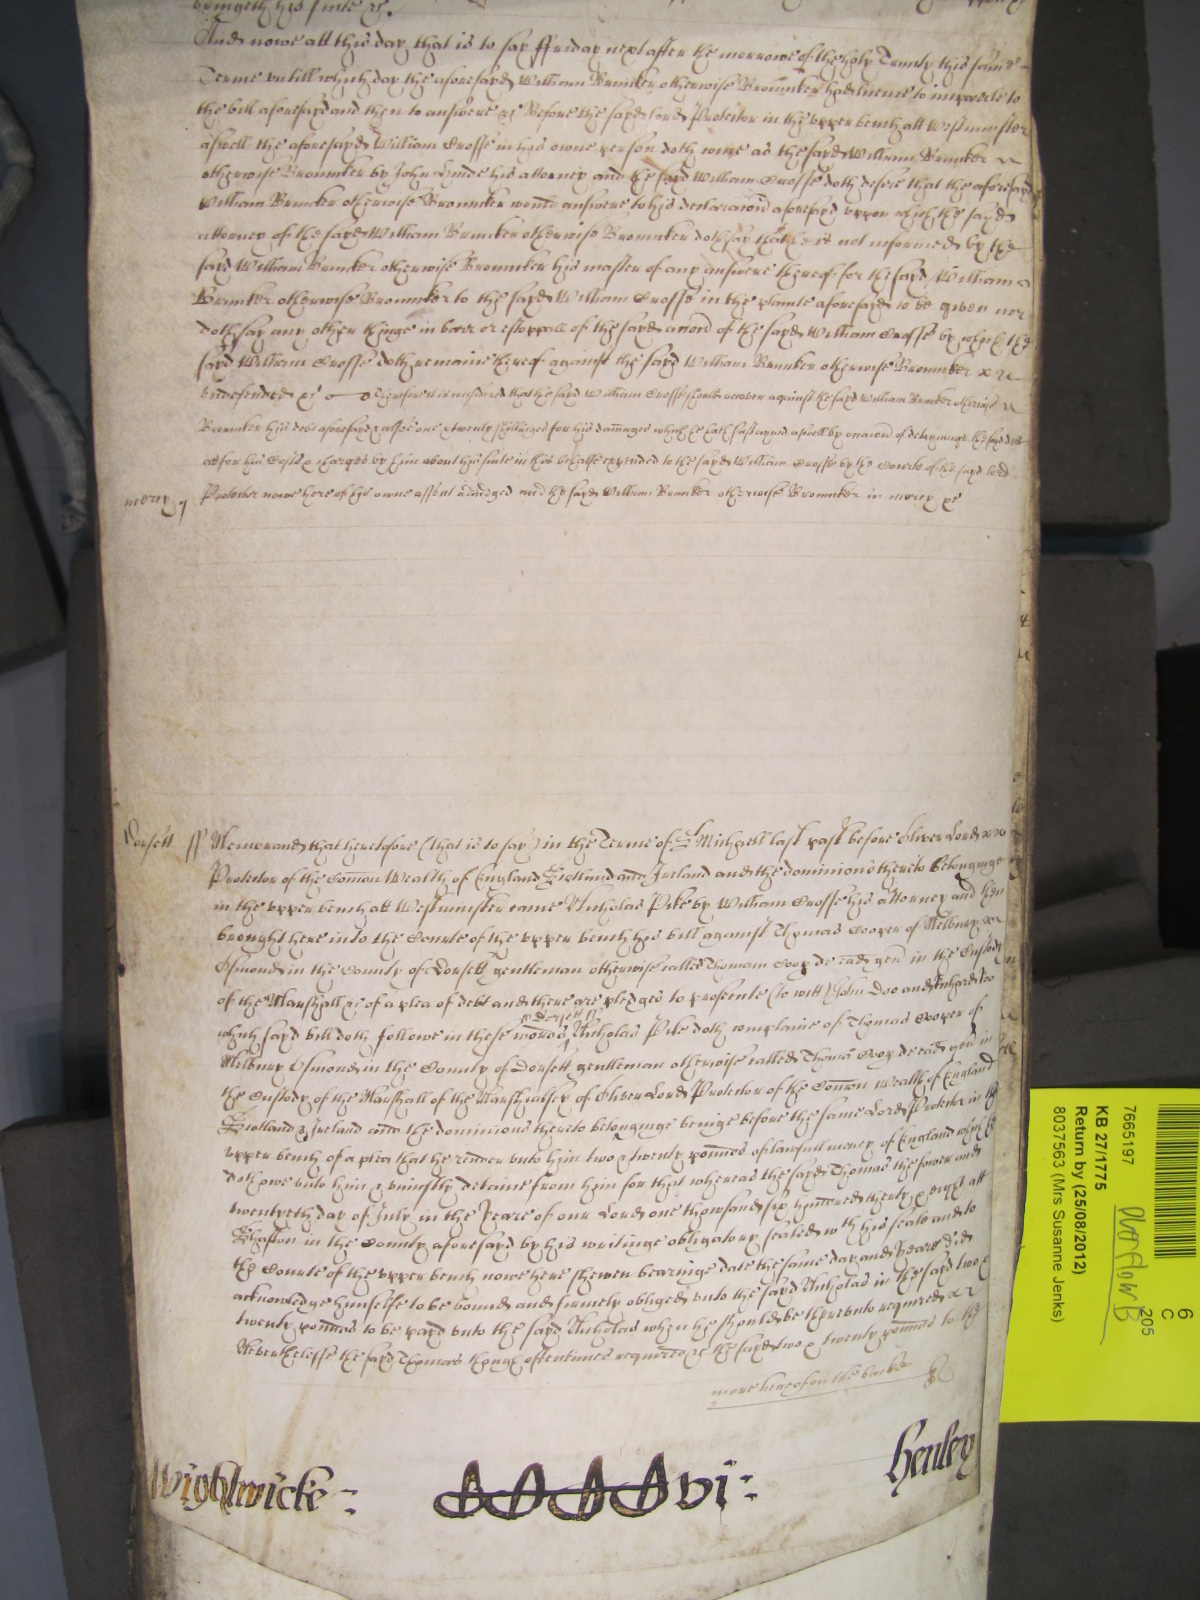 bringeth his suite &c.
And nowe att this day that is to say ffriday next after the morrowe of the holy Trinity this same
Terme untill which day the aforesayd William Bruncker otherwise Brouncker had licence to imparle to
the bill aforesayd and then to answere &c Before the sayd lord Protector in the upper bench att Westminster
aswell the aforesayd William Crosse in his owne person doth come as the sayd William Bruncker
otherwise Brouncker by John his attorney and the sayd William Crosse doth desire that the aforesayd
William Bruncker otherwise Brouncker would answere to his declaracon aforesayd uppon which the sayd
attorney of the sayd William Bruncker otherwise Brouncker doth say that he is not informed by the
sayd William Bruncker otherwise Brouncker his master of any answere thereof for the sayd William
Bruncker otherwise Brouncker to the sayd William Crosse in the plainte aforesayd to be given nor
doth say any other thinge in barr or estoppall of the sayd accon of the sayd William Crosse by which the
sayd William Crosse doth remaine thereof against the sayd William Bruncker otherwise Brouncker
undefended &c Therefore it is considered that the sayd William Crosse should recover against the sayd William Bruncker otherwise
Brouncker his debt aforesayd & alsoe one & twenty shillinges for his damages which he hath susteyned aswell by occasion of deteyninge the sayd debt
as for his Costs & charges by him about his suite in this behalfe expended to the sayd William Crosse by the Courte of the sayd lord
mercy Protector nowe here of his owne assent adiudged and the sayd William Bruncker otherwise Brouncker in mercy &c
Dorsett ss Memorand that heretofore (that is to say) in the Terme of St Michaell last past before Oliver Lord
Protector of the Comon Wealth of England Scotland and Ireland and the dominions thereto belonginge
in the upper bench att Westminster came Nicholas Pike by William Crosse his attorney and then
brought here into the Courte of the upper bench his bill against Thomas Cooper of Melbury
Osmond in the County of Dorsett gentleman otherwise called Thomam Coop de ead gen in the Custody
of the Marshall &c of a plea of debt and there are pledges to prosecute (to witt) John Doo and Richard Roo
which sayd bill doth followe in these words Dorsett ss Nicholas Pike doth complaine of Thomas Cooper of
Milbury Osmond in the County of Dorsett gentleman otherwise called Thomã Coop de ead gen in
the Custody of the Marshall of the Marshalsey of Oliver Lord Protector of the Comon wealth of England
Scotland & Ireland and the dominions thereto belonginge beinge before the same Lord Protector in the
upper bench of a plea that he render unto him two & twenty pounds of lawfull money of England which he
doth owe unto him & uniustly detaine from him for that whereas the sayd Thomas the fower and
twentyeth day of July in the Yeare of our Lord one thowsand six hundred thirty & eight att
Shafton in the County aforesayd by his writinge obligatory sealed wth his seale and to
the Courte of the upper bench nowe here shewen bearinge date the same day and Yeare did
acknowledge himselfe to be bound and firmely obliged unto the sayd Nicholas in the sayd two &
twenty pounds to be payd unto the sayd Nicholas when he should be thereunto required
Neverthelesse the sayd Thomas though oftentimes required &c the sayd two & twenty pounds to the
more hereof on the backe
Wightwicke
Henley
7665197
KB 27/1775
Return by (25/08/2012)
8037563 (Mrs Susanne Jenks)
6
C
205